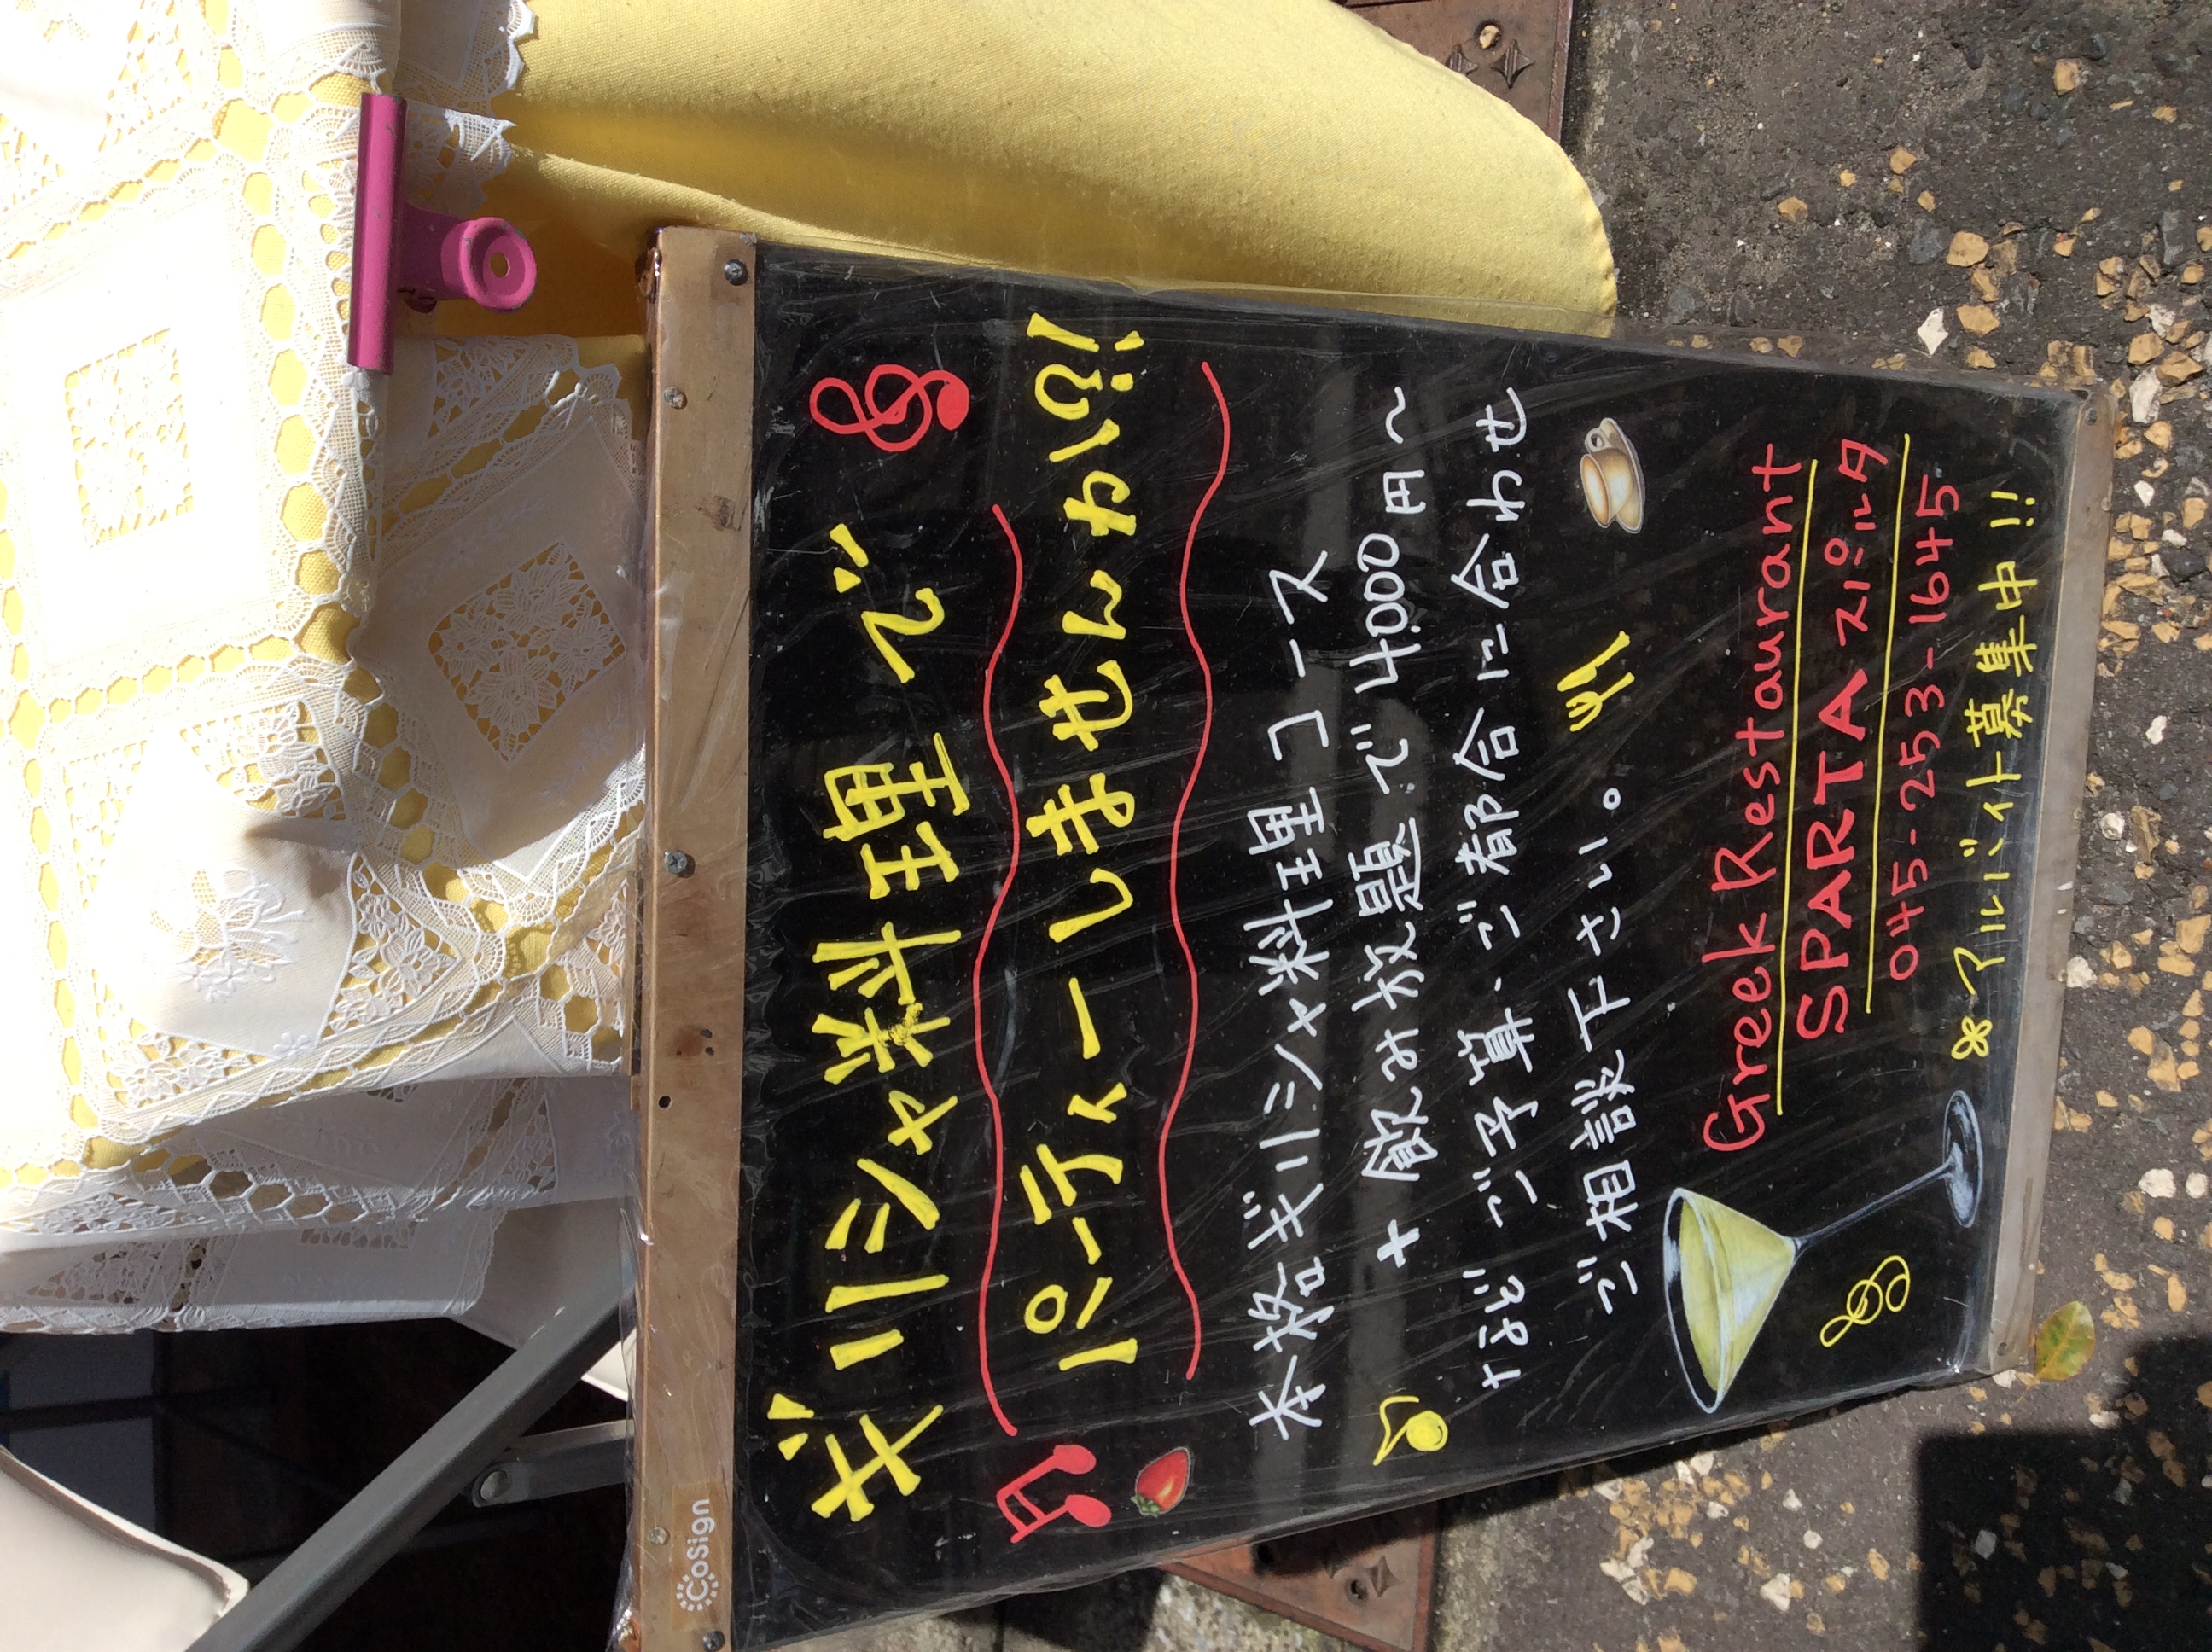 ギリシャ料理で
パーティーしませんか!?!
本格ギリシャ料理コース
+ 飲み放題で4,000円〜
など ご予算・ご都合に合わせ
ご相談下さい。
Greek Restaurant
SPARTA スパルタ
045-253-1645
アルバイト募集中!!
CoSign